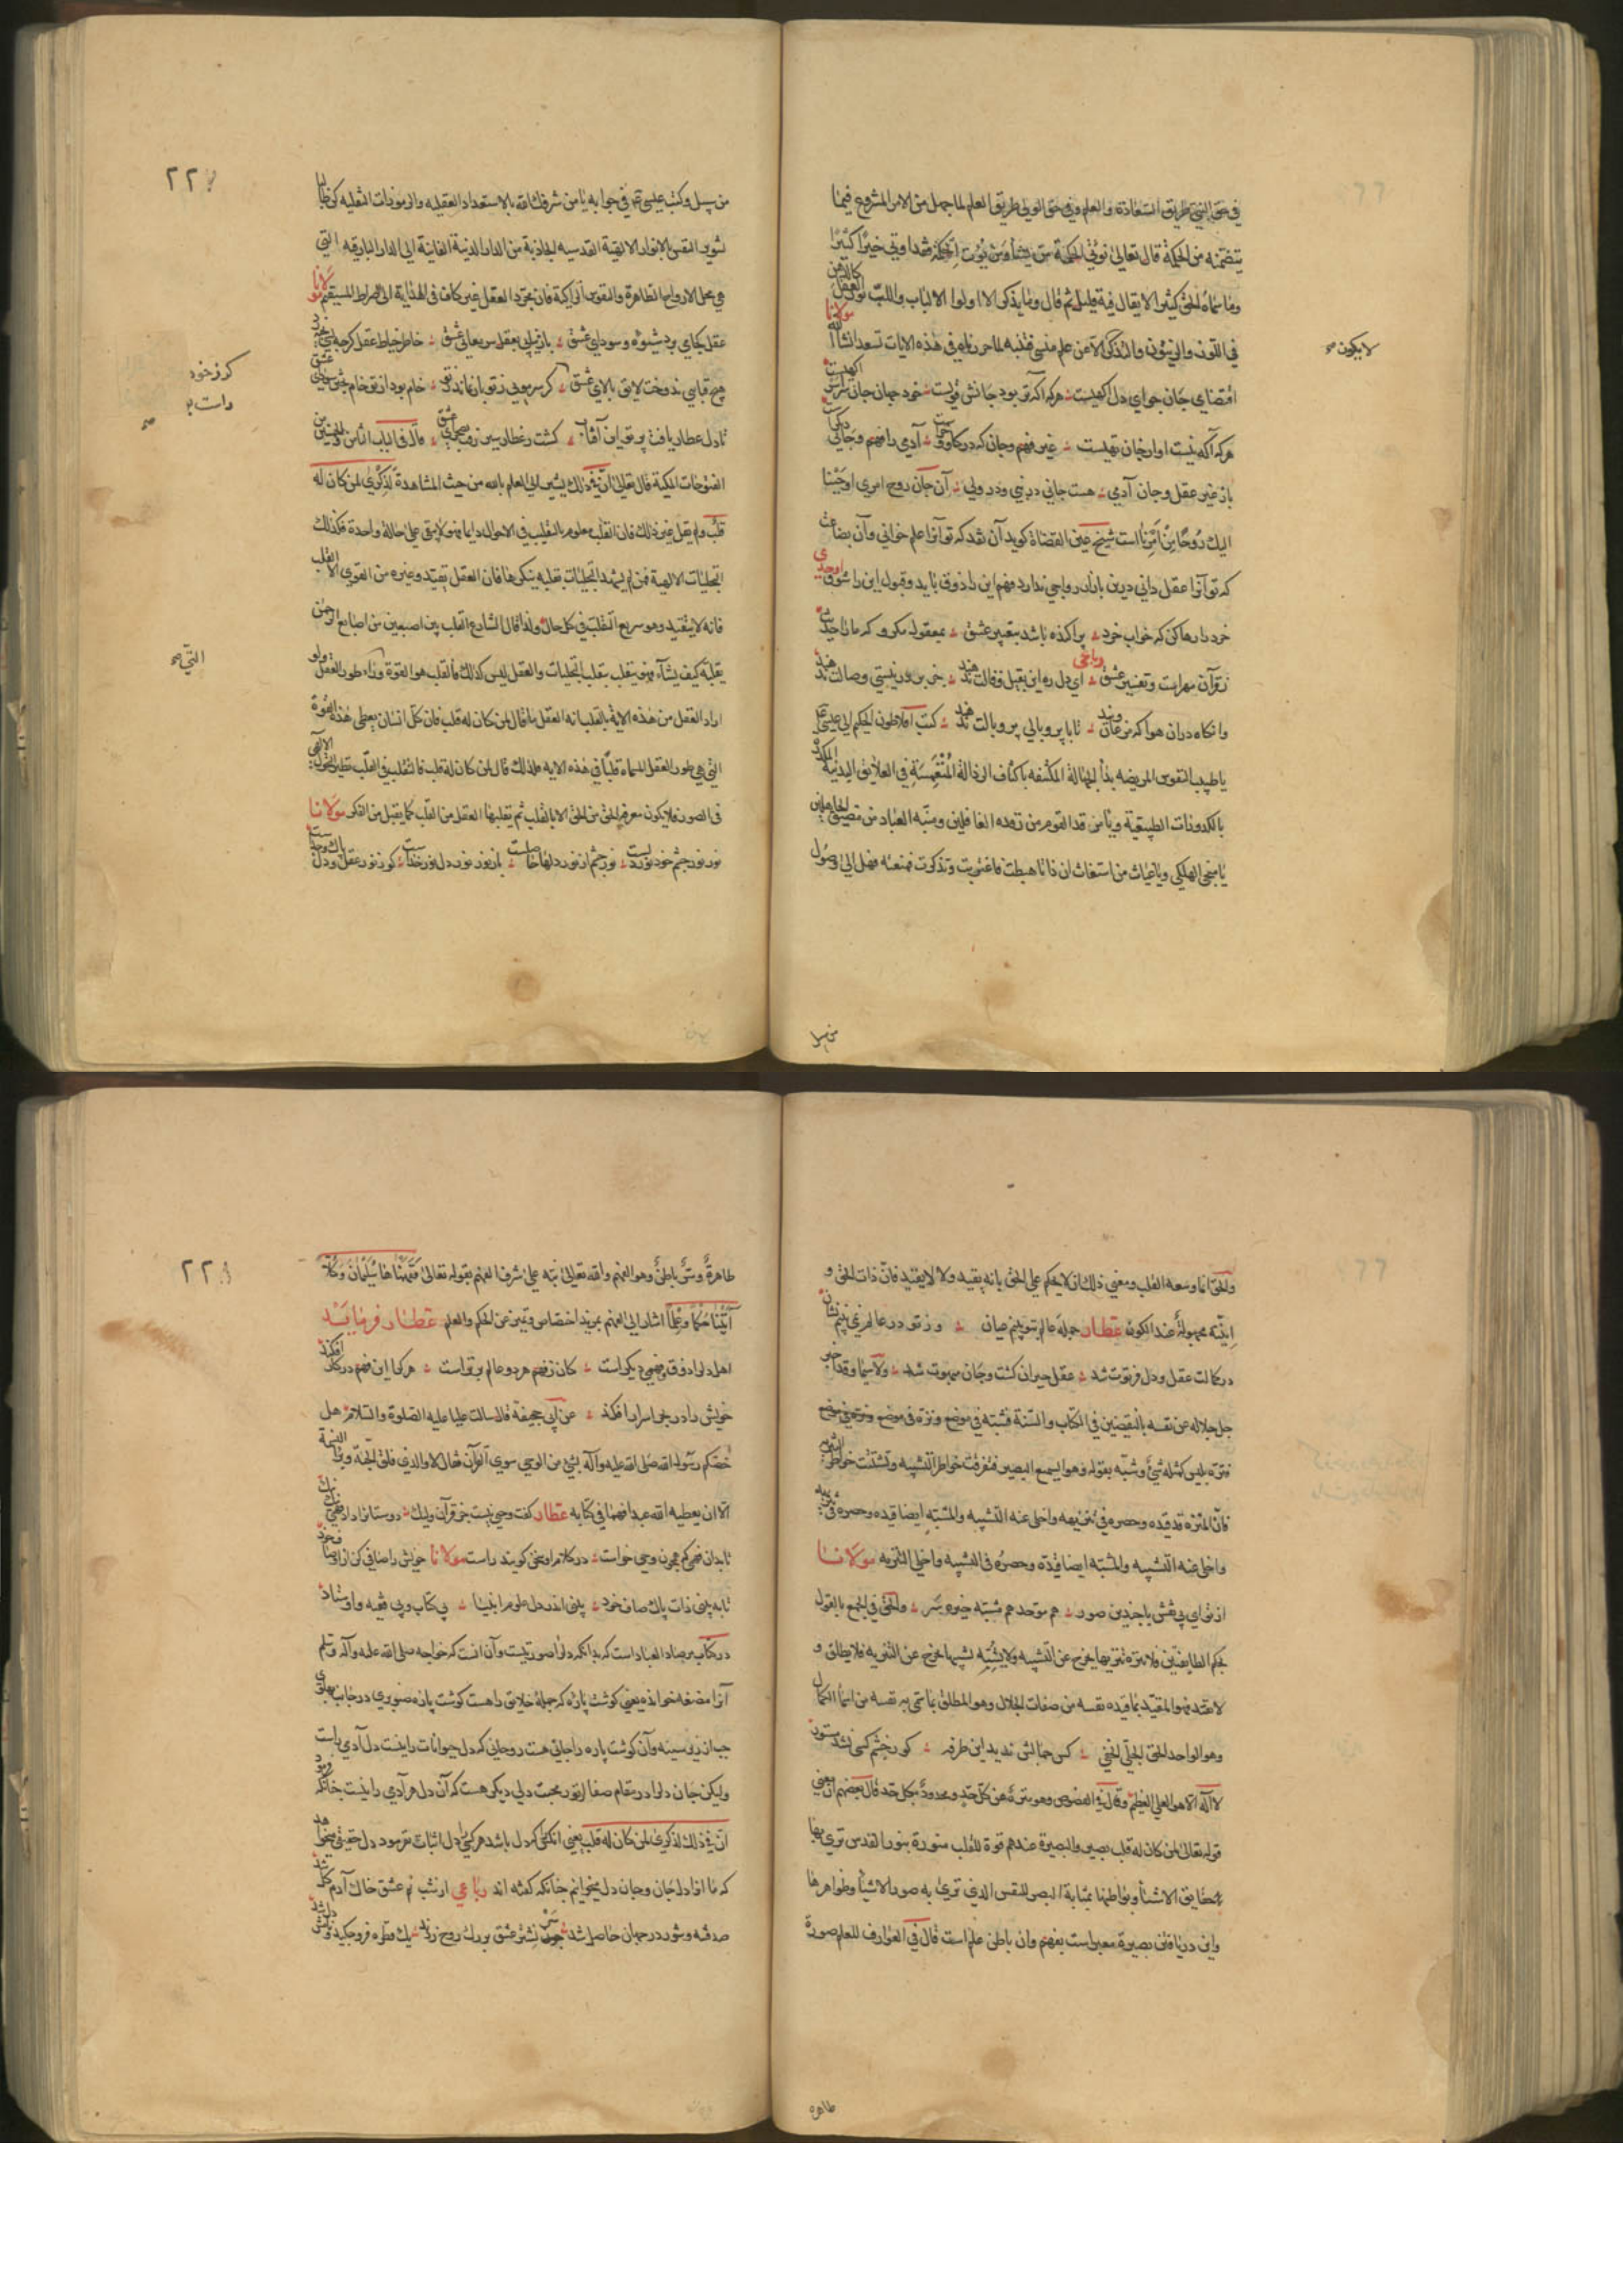 في حق النبي طريق السعادة والعلم وفي حق الولي طريق العلم لما جهل من الامر المشروع فيما
يتضمنه من الحكمة قال تعالى نؤتي الحكمة من يشاء ومن يؤت الحكمة فقد اوتي خيرًا كثيرًا
وما سماه الحق كثيرا لا يقال فيه قليل ثم قال وما يذكر الا اولوا الالباب واللب نور العقل كالدهن
في اللوز والزيتون والتذكر لا عن علم منسي فتنبه لما حررناه في هذه الايات تسعد انشا الله مولانا
لا يكون صح
اقتضاى جان جواى دل اكهيست هركه آكه تر بود جانش قويست خود جهان جان سراسر اكهيست
هركه آكه نيست اوارجان تهيست غير فهم وجان كه در كاو وخرست آدمى را فهم وجانى ديكرست
باز غير عقل وجان آدمى هست جانى در نبي ودر ولى آن جان روح امرى اوحينا
اليك رُوحًا مِنْ اَمْرِنا است شيخ عين القضاة كويد آن شد كه تو آنرا علم خوانى وآن بضاعت
كه تو آنرا عقل دانى درين بازار رواجى ندارد فهم اين را ذوق بايد وقبول اين را شوق اوحدى
خرد را رها كن كه خواب خرد پراكنده باشد بتعبير عشق بمعقول مكرو كه ما را حديث
زقرآن مهرست وتفسير عشق رباعى اى دل ره اين بقيل وقالت ندهند جز بر در نيستى وصالت ندهند
وانكاه دران هوا كه مرغان ويند تا با پر وبالى پر وبالت ندهند كتب افلاطون الحكيم الى عيسى
يا طبيب النفوس المريضه بداء الجهالة المكتنفه باكناف الرذالة الْمُنْغَمِسَةِ فى العلائق البدنية المكدرة
بالكدورات الطبيعية ويا من قد القوم من رقده الغافلين ومنبّه العباد من مضيق الجاهلين
يا منجى الهلكى ويا غياث من استغاث ان ذاتا هبطت فاغتربت وتذكرت فمنعت فهل الى وصول
من سبيل
من سبيل وكتب عليسى ع م فى جوابه يا من شرفك الله بالاستعداد العقليه والرموزات النقليه كن طالبا
لتنوير النفس بالانوار الالهية القدسيه الجاذبة من الدار الدنية الفانية الى الدار الباقيه التى
هى محل الارواح الطاهرة والنفوس الزاكية فان مجرّد العقل غير كاف فى الهداية الى الصراط المستقيم مولانا
عقل كجاى برد شيوه وسوداى عشق باز نيابى بعقل سر معماى عشق خاطر خياط عقل كرچه بسى بخيه زد
هيچ قبايى ندوخت لايق بالاى عشق كر سر مويى زتو با تو بماند خام بود از تو خام پختن سوداى عشق
كرزخود
راست بر
صح
تا دل عطار يافت پرتو اين آفتاب كشت ز عطار سير رفت بصحراى عشق قال فى الباب
الفتوحات المكية قال تعالى انّ فى ذلك يشير الى العلم بالله من حيث المشاهدة لَذِكْرى لمن كان له
قلب ولم يقل غير ذلك فان القلب معلوم بالتقليب فى الاحوال دايما فهو لا يبقى على حالة واحدة فكذلك
التجليات الالهية فمن لم يشهد التجليات بقلبه ينكرها فان العقل يقيّد وغيره من القوى الا القلب
فانه لا يتقيد وهو سريع التقلب فى كل حال ولذا قال الشارع القلب بين اصبعين من اصابع الرحمن
يقلبه كيف يشاء فهو يتقلب بتقلب التجليات والعقل ليس كذلك فالقلب هو القوة وراء طور العقل ولو
التى صح
اراد العقل من هذه الاية بالقلب انه العقل ما قال لمن كان له قلب فان كل انسان يعطى هذه القوة
التى هى طور العقل المسماه قلبًا فى هذه الايه فلذلك قال لمن كان له قلب فالتقليب فى القلب نظير التحول الالهى
فى الصور فلا يكون معرفة الحق من الحق الا بالقلب ثم يقبلها العقل من القلب كما يقبل من الفكر مولانا
نور نور چشم خود نور دلست نور چشم از نور دلها حاصلست باز نور نور دل نور خداست كوز نور عقل وحس پاك وجداست
والحق انما وسعه القلب ومعنى ذلك ان لا يحكم على الحق بانه يقيد ولا لا يقيد فانّ ذات الحق و
انيّته مجهولة عند الكون عطار جمله عالم بتو بينم عيان وز تو در عالم نمى بينم نشان
در كمالت عقل ودل فرتوت شد عقل حيران كشت وجان مبهوت شد ولا سيما وقد اخبر
جل جلاله عن نفسه بالنقيضين فى الكتاب والسنة فشبّه فى موضع ونزّه فى موضع
فنزه بليس كمثله شئ وشبّه بقوله وهو السميع البصير فتفرقت خواطر التشبيه وتشتتت خواطر التنزيه
فانّ المنزّه قد قيده وحصره فى تنزيهه واخلى عنه التشبيه والمشبّه ايضا قيده وحصره فى تشبيه
واخلى عنه التشبيه والمشبّه ايضا قيّده وحصرُه فى التشبيه واخلى التنزيه مولانا
از تو اى بى نقش با چندين صور هم موحد هم مشبّه خيره سر والحق فى الجمع بالقول
بحكم الطايفتين فلا ينزّه تنزيهًا يخرج عن التشبيه ولا يشبّه تشبيها يخرج عن التنزيه فلا يطلق و
لا تقيّد فهو المقيّد بما قيده نفسه من صفات الجلال وهو المطلق بما سمى به نفسه من اسماء الكمال
وهو الواحد الحق الجلىّ الخفي كس جمالش نديد اين طرفه كور چشم كسى نشد مستور
لا اله الا هو العلى العظيم وقال فى الفصوص وهو منزّه عن كل حدّ ومحدود بكل حد قال بعضهم ان معنى
قوله تعالى لمن كان له قلب بصير والبصيرة عندهم قوة للقلب منورة بنور القدس ترى بها
حقايق الاشياء وبواطنها بمثابة البصر للنفس الذى ترى به صور الاشيا وظواهرها
واين دريافتن بصيرة معبر است بفهم وان باطن علم است قال فى العوارف للعلم صورة
طاهره
طاهرةٌ وسرٌّ باطنٌ وهو الفهم والله تعالى نبّه على شرف الفهم بقوله تعالى فَفَهَّمْنَاهَا سُلَيْمَانَ وَكُلّاً
آتَيْنَا حُكْمًا وعِلْماً اشار الى الفهم بمزيد اختصاص وتميز عن الحكم والعلم عطار فرمايند
اهل دل را ذوق وفهمى ديكر است كان ز فهم هر دو عالم برتر است هر كرا اين فهم در كار افكند
خويش را در بحر اسرار افكند عن ابى جحيفة قال سالت عليا عليه الصلوة والسلام هل
خصّكم رسول الله صلى الله عليه وآله بشئ من الوحى سوى القرآن فقال لا والذى فلق الحبّة وبرا النسمة
الا ان يعطيه الله عبدا فهما فى كتابه عطار كفت وحى نيست جز قرآن وليك دوستانرا داد فهمى نيك نيك
تا بدان فهمى كه همچون وحى خواست در كلام او سخن كويند راست مولانا خويش را صافى كن از اوصاف خود
تا به بينى ذات پاك صاف خود بينى اندر دل علوم انبيا بى كتاب وبى معيد واوستاد
در كتاب مرصاد العباد است كه بدانكه دل را صورتيست وآن آنست كه خواجه صلى الله عليه وآله وسلم
آنرا مضغه خوانده يعنى كوشت پاره كه جمله خلايق را هست كوشت پاره صنوبرى در جانب پهلوى
چپ از زير سينه وآن كوشت پاره را جانى هست روحانى كه دل حيوانات را نيست دل آدمى راست
وليكن جان دل را در مقام صفا از نور محبت دلى ديكر هست كه آن دل هر آدمى را نيست چنانكه فرمود
انّ فى ذلك لذكرى لمن كان له قلب يعنى آنكس را كه دل باشد هر كس را دل اثبات نفرمود دل حقيقى ميخواهد
كه ما انرا دل جان وجان دل ميخوانيم چنانكه كفته اند رباعى از شبنم عشق خاك آدم كل شد
صد فتنه وشور در جهان حاصل شد سر نشتر عشق بر رك روح زدند يك قطره فرو چكيد ونامش دل شد